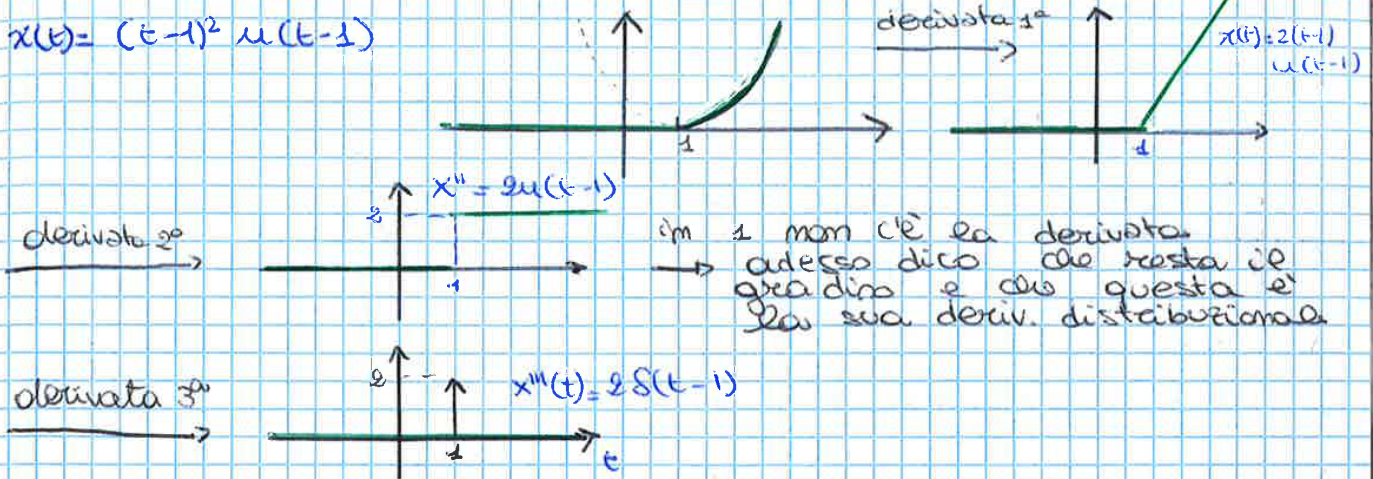 x(t) = (t-1)² u(t-1)
derivata 1ª
x(t) = 2(t-1)
u(t-1)
1
1
derivata 2ª
x'' = 2u(t-1)
2
1
in 1 non c'è la derivata
adesso dico che resta il
gradino e che questa è
la sua deriv. distribuzionale
derivata 3ª
2
x'''(t) = 2δ(t-1)
1
t